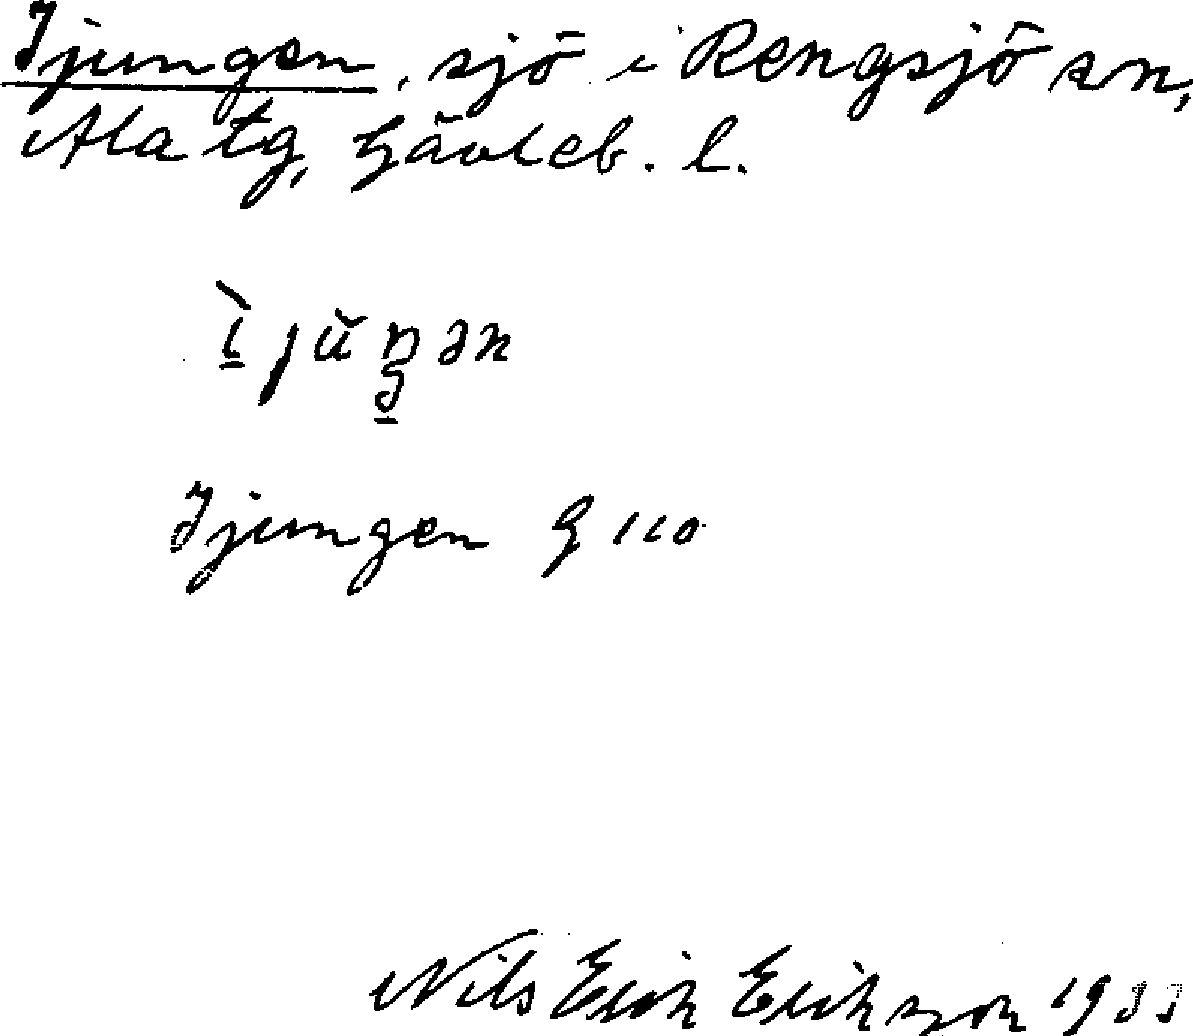 Ijungen, sjö i Rengsjö sn,
Ala tg, Gävleb. l.
ì̱ jŭŋ̱ən
Ijungen G 110
Nils Erik Erikson 1933